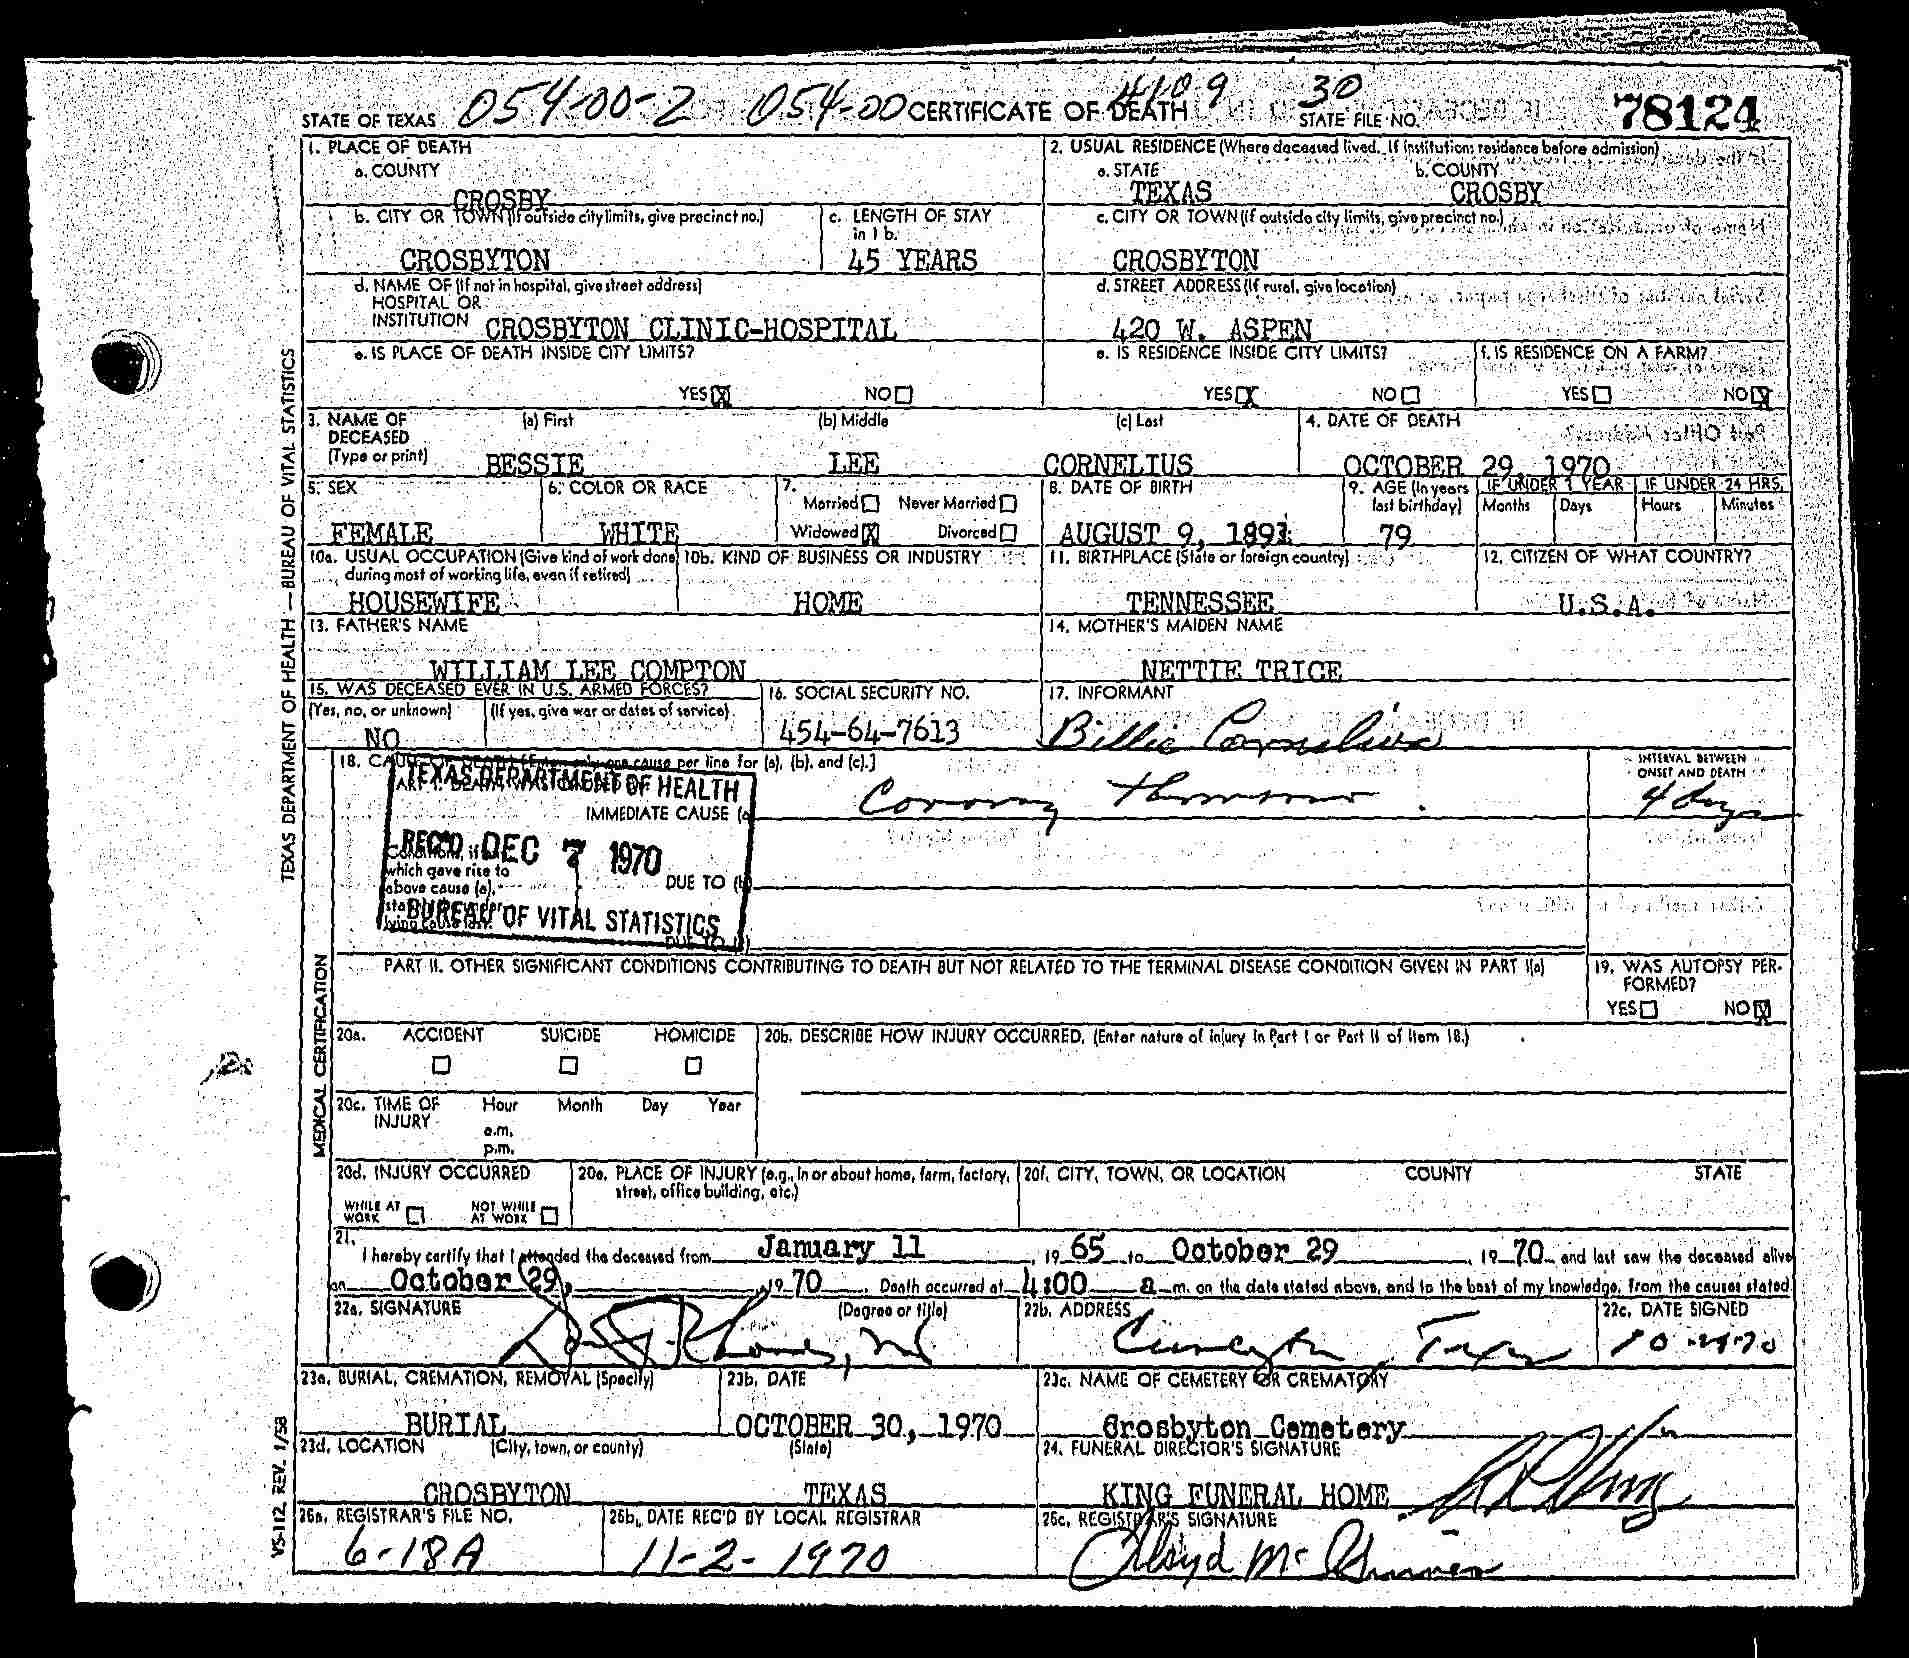 STATE OF TEXAS 054-00-2 054-00 CERTIFICATE OF DEATH 4109 30 STATE FILE NO. 78124
1. PLACE OF DEATH
a. COUNTY
CROSBY
2. USUAL RESIDENCE (Where deceased lived. If institution: residence before admission)
a. STATE b. COUNTY
TEXAS CROSBY
b. CITY OR TOWN (If outside city limits, give precinct no.)
CROSBYTON
c. LENGTH OF STAY in 1 b.
45 YEARS
c. CITY OR TOWN (If outside city limits, give precinct no.)
CROSBYTON
d. NAME OF (If not in hospital, give street address)
HOSPITAL OR
INSTITUTION CROSBYTON CLINIC-HOSPITAL
d. STREET ADDRESS (If rural, give location)
420 W. ASPEN
e. IS PLACE OF DEATH INSIDE CITY LIMITS?
YES X NO
e. IS RESIDENCE INSIDE CITY LIMITS?
YES X NO
f. IS RESIDENCE ON A FARM?
YES NO X
3. NAME OF DECEASED (Type or print) (a) First (b) Middle (c) Last
BESSIE LEE CORNELIUS
4. DATE OF DEATH
OCTOBER 29, 1970
5. SEX
FEMALE
6. COLOR OR RACE
WHITE
7. Married Never Married
Widowed X Divorced
8. DATE OF BIRTH
AUGUST 9, 1891
9. AGE (In years last birthday)
79
IF UNDER 1 YEAR
Months Days
IF UNDER 24 HRS.
Hours Minutes
10a. USUAL OCCUPATION (Give kind of work done during most of working life, even if retired)
HOUSEWIFE
10b. KIND OF BUSINESS OR INDUSTRY
HOME
11. BIRTHPLACE (State or foreign country)
TENNESSEE
12. CITIZEN OF WHAT COUNTRY?
U.S.A.
13. FATHER'S NAME
WILLIAM LEE COMPTON
14. MOTHER'S MAIDEN NAME
NETTIE TRICE
15. WAS DECEASED EVER IN U.S. ARMED FORCES?
(Yes, no, or unknown) (If yes, give war or dates of service)
NO
16. SOCIAL SECURITY NO.
454-64-7613
17. INFORMANT
Billie Cornelius
18. CAUSE OF DEATH [Enter only one cause per line for (a), (b), and (c).]
TEXAS DEPARTMENT OF HEALTH
REC'D DEC 7 1970
BUREAU OF VITAL STATISTICS
IMMEDIATE CAUSE (a) Coronary
INTERVAL BETWEEN ONSET AND DEATH
4 days
which gave rise to
above cause (a),
lying cause last.
DUE TO (b)
DUE TO
PART II. OTHER SIGNIFICANT CONDITIONS CONTRIBUTING TO DEATH BUT NOT RELATED TO THE TERMINAL DISEASE CONDITION GIVEN IN PART I(a)
19. WAS AUTOPSY PERFORMED?
YES NO X
20a. ACCIDENT SUICIDE HOMICIDE
20b. DESCRIBE HOW INJURY OCCURRED. (Enter nature of injury in Part I or Part II of Item 18.)
20c. TIME OF INJURY Hour Month Day Year
a.m.
p.m.
20d. INJURY OCCURRED
WHILE AT WORK NOT WHILE AT WORK
20e. PLACE OF INJURY (e.g., in or about home, farm, factory, street, office building, etc.)
20f. CITY, TOWN, OR LOCATION COUNTY STATE
21. I hereby certify that I attended the deceased from January 11, 19 65 to October 29, 19 70 and last saw the deceased alive
on October 29, 19 70. Death occurred at 4:00 a m. on the date stated above, and to the best of my knowledge, from the causes stated.
22a. SIGNATURE (Degree or title)
22b. ADDRESS
Crosbyton, Texas
22c. DATE SIGNED
10-29-70
23a. BURIAL, CREMATION, REMOVAL (Specify)
BURIAL
23b. DATE
OCTOBER 30, 1970
23c. NAME OF CEMETERY OR CREMATORY
Crosbyton Cemetery
23d. LOCATION (City, town, or county) (State)
CROSBYTON TEXAS
24. FUNERAL DIRECTOR'S SIGNATURE
KING FUNERAL HOME
25a. REGISTRAR'S FILE NO.
6-18A
25b. DATE REC'D BY LOCAL REGISTRAR
11-2-1970
25c. REGISTRAR'S SIGNATURE
TEXAS DEPARTMENT OF HEALTH — BUREAU OF VITAL STATISTICS
MEDICAL CERTIFICATION
VS-112 REV. 1/58